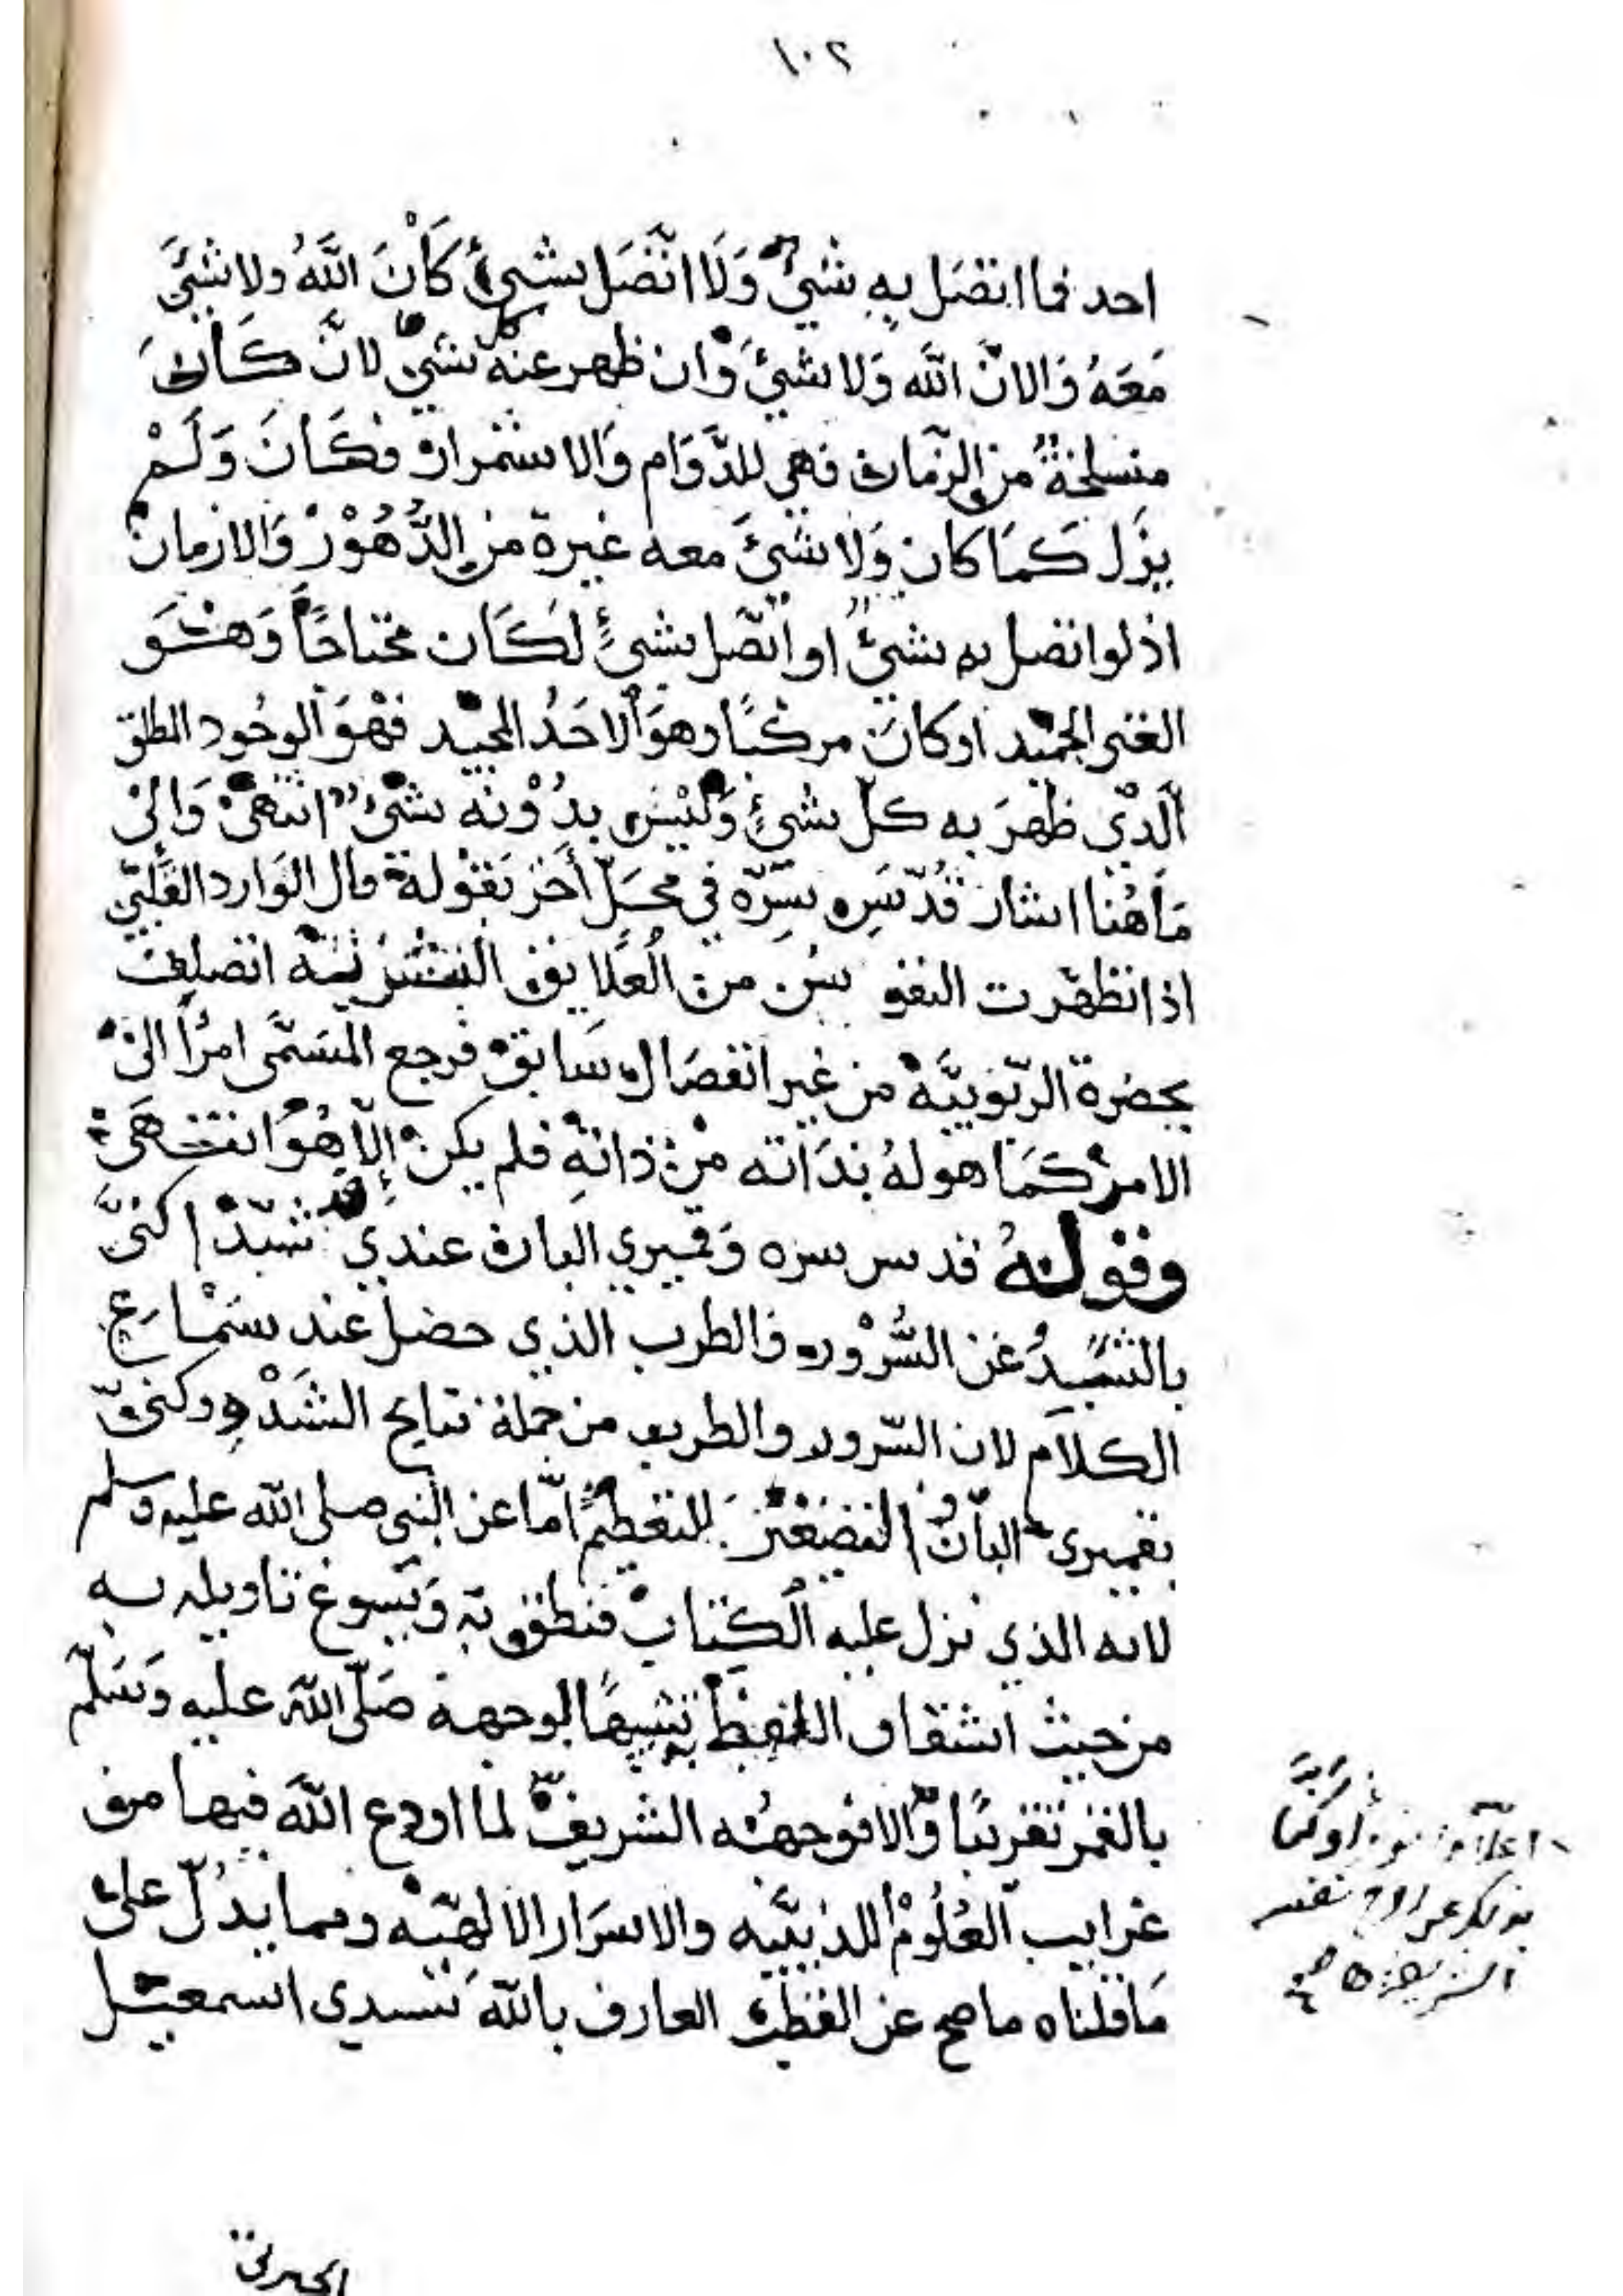 ١٠٢
احد فما اتصَل بِهِ شئٌ وَلَا اتَّصَل بشئٍ كَانَ اللّهُ ولا شئَ
مَعَهُ وَالانَ اللّه وَلا شئَ وَان ظهر عنه كل شئ لانّ كَانَ
منسلخةٌ من الزمان فهي للدَّوَام وَالاستمرار فكَانَ وَلَمْ
يزَل كَمَا كان وَلا شئَ معه غيره من الدُّهُوْر وَالازمان
اذ لو اتصل به شئٌ او اتّصل بشئٍ لكَان محتاجًا وَهُوَ
الغنى الحميد او كان مركبًا وهوَ الاحَدُ المجيد فهْوَ الوجُود المطلق
الّذي ظهَرَ به كلّ شئٍ وَليسَ بدُوْنه شئٌ انتهىٰ وَالىٰ
مَا هُنا اشار قُدّسَ سِرّه في محَلّ أخَر بقوْله قال الوَارد القَلبيّ
اذا تطهّرت النفوس من العَلايق البشريّه اتصلت
بحضرة الربّوبيَّة من غير انفصَال سَابق فرجع المسَمّى امرًا الىٰ
الامر كمَا هو لهُ بذَاته من ذاتهِ فلم يكن إلّا هُو انتهَىٰ
وقولهُ قدس سره وَقميري البان عندي قد شَدْ كنىَّ
بالتشييدُ عَن السُّرْور والطرب الذي حصَل عند سمَاع
الكلام لان السّرور والطرب من جملة نتايج الشَدْو وكنىّ
بقميرى البان والتصغيرُ للتعظيم امّا عن النبي صلى اللّه عليه وسلم
لانه الذي نزل عليه الكتاب فنطق به وَيسوغ تاويله به
من حيث اشتقاق اللفظ تشبيهًا لوجهه صَلّى اللّه عليه وَسَلّم
بالقمر تقريبًا وَّالا فوجههُ الشريف لما اودع اللّه فيها من
غرايب العُلوْم اللدنيّيه والاسرَار الالهيّه ومما يدُلّ على
مَا قلناه ما صح عن القطب العارف باللّه سيدي اسمعيل
الجبرتى